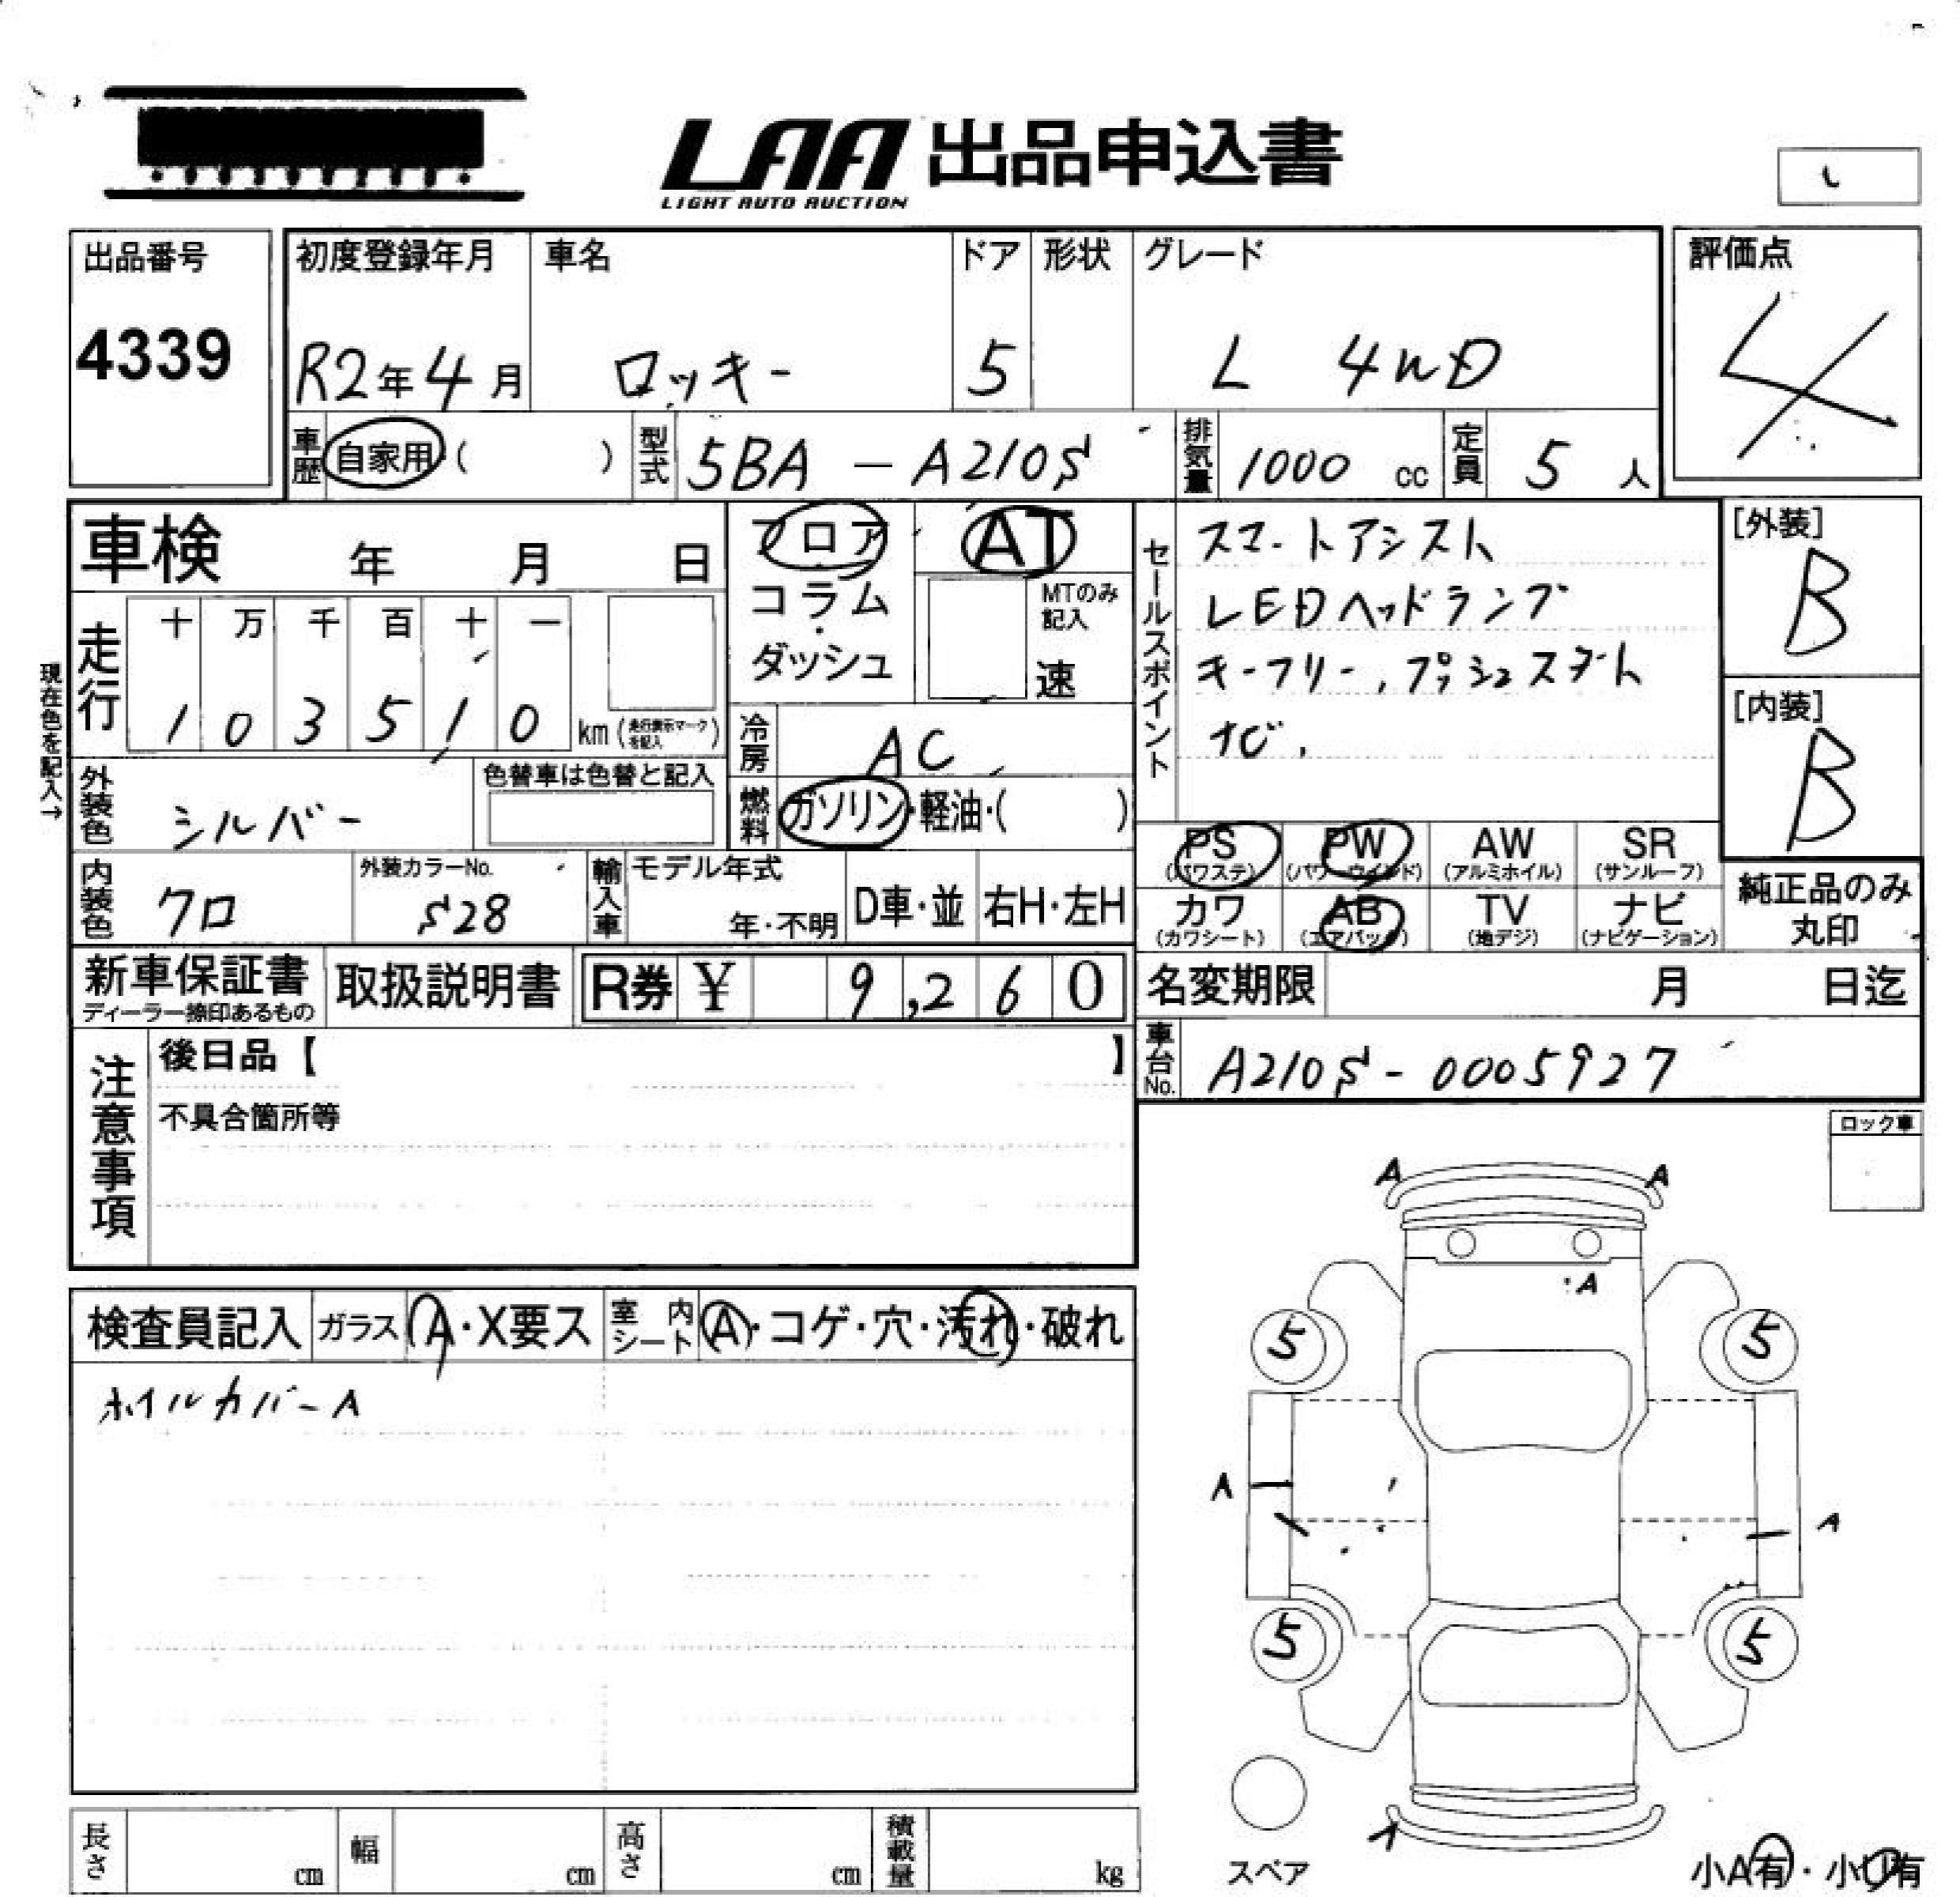 LAA 出品申込書
LIGHT AUTO AUCTION
出品番号
4339
初度登録年月
R2年4月
車名
ロッキー
ドア
5
形状
グレード
L 4WD
評価点
4
車歴 自家用 ( )
型式 5BA-A210S
排気量 1000 cc
定員 5 人
車検 年 月 日
フロア・コラム・ダッシュ
AT
MTのみ記入
速
セールスポイント
スマートアシスト
LEDヘッドランプ
キーフリー, プッシュスタート
ナビ,
[外装]
B
[内装]
B
現在色を記入→
走行
十 万 千 百 十 一
1 0 3 5 1 0 km (走行表示マークを記入)
冷房 AC
外装色 シルバー
色替車は色替と記入
燃料 ガソリン・軽油・( )
PS (パワステ)
PW (パワーウインド)
AW (アルミホイル)
SR (サンルーフ)
内装色 クロ
外装カラーNo. S28
輸入車
モデル年式
年・不明
D車・並
右H・左H
カワ (カワシート)
AB (エアバッグ)
TV (地デジ)
ナビ (ナビゲーション)
純正品のみ丸印
新車保証書
ディーラー捺印あるもの
取扱説明書
R券 ¥ 9,260
名変期限 月 日迄
車台No. A210S-0005927
注意事項
後日品【 】
不具合箇所等
ロック車
A A
A
5 5
A
A
5 5
A
検査員記入
ガラス A・X要ス
室内シート A・コゲ・穴・汚れ・破れ
ホイルカバーA
長さ cm
幅 cm
高さ cm
積載量 kg
スペア
小A有・小U有